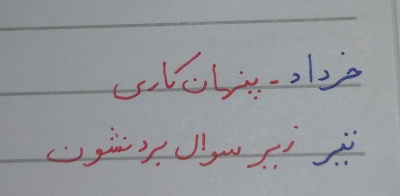 خرداد - پنهان کاری
تیر زیر سوال بردنشون